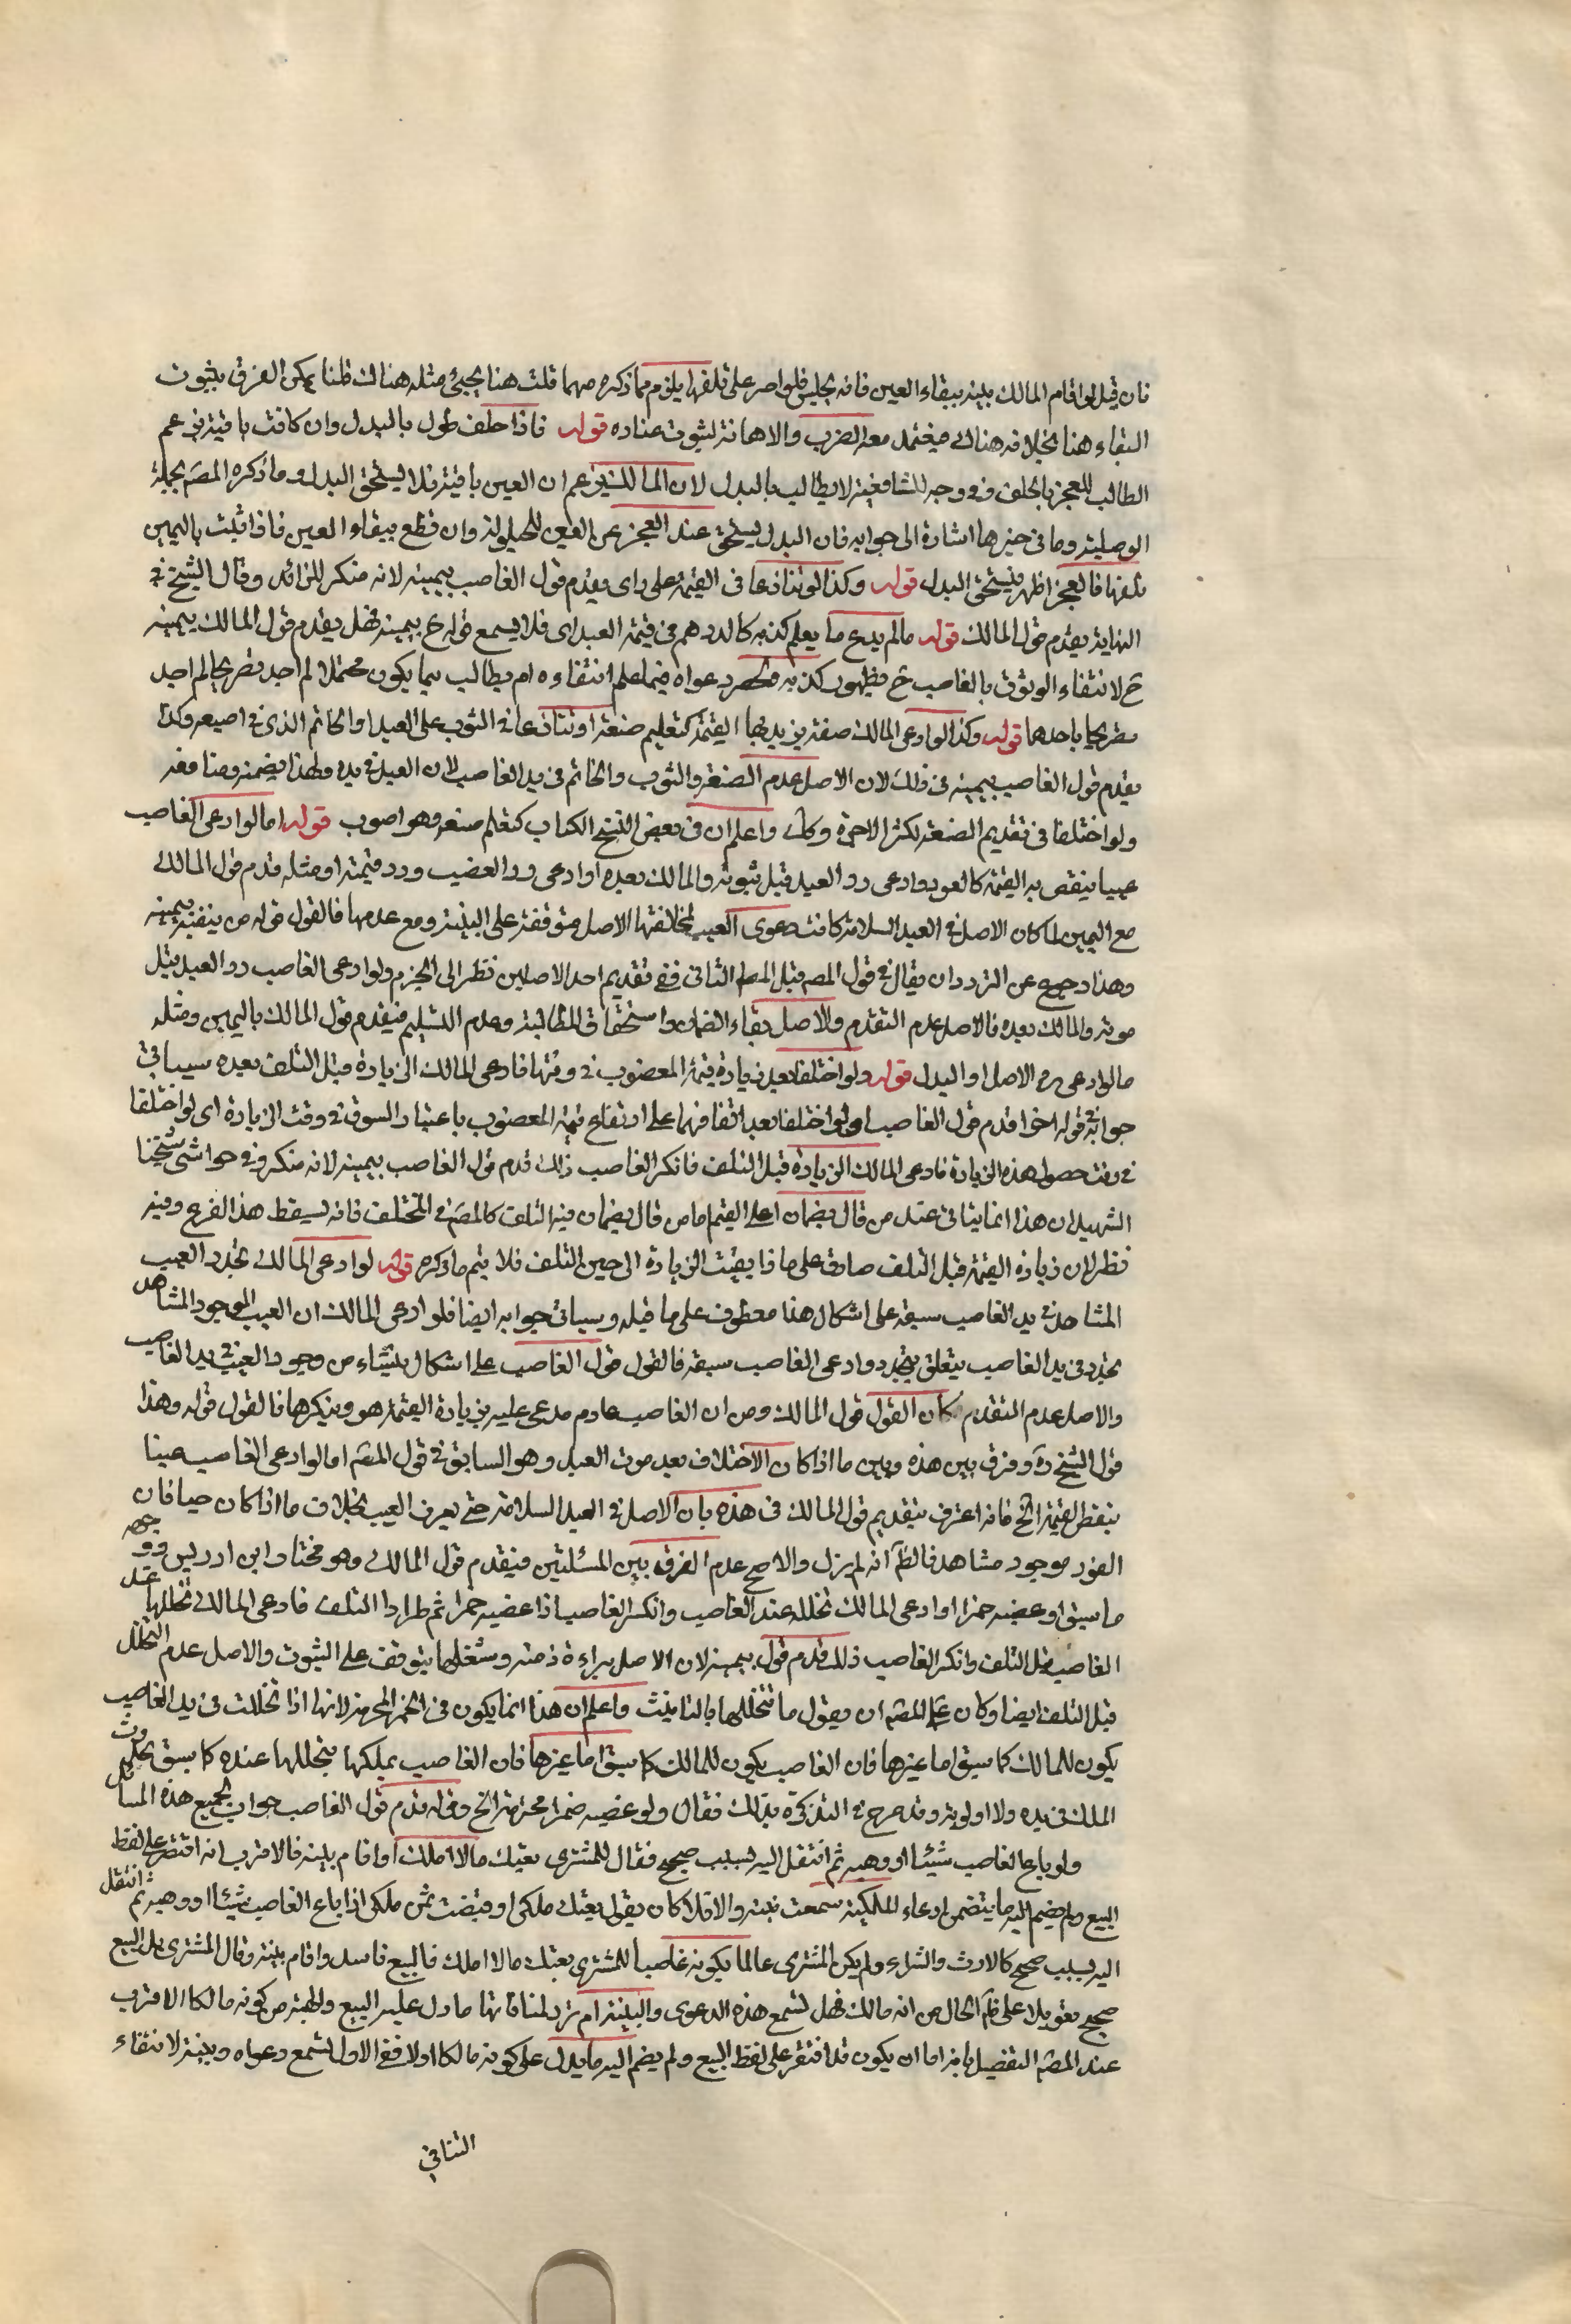 فان قيل لو اقام المالك بينة ببقاء العين فانه يحبس فلو اصر على تلفها يلزم مما ذكره مهما قلت هنا يجيئ مثله هناك قلنا يمكن الفرق بثبوت
البقاء هنا بخلافه هناك فيعتمد معه الضرب والاهانة لثبوت عناده قوله فاذا حلف طولب بالبدل وان كانت باقية بزعم
الطالب للعجز بالحلف وفي وجه للشافعية لا يطالب بالبدل لان المالك يزعم ان العين باقية فلا يستحق البدل وما ذكره المصّ بجملة
الوصلية وما في حيزها اشارة الى جوابه فان البدل يستحق عند العجز عن العين للحيلولة وان قطع ببقاء العين فاذا ثبت باليمين
تلفها فالعجز اظهر فيستحق البدل قوله وكذا لو تنازعا في القيمة على راى يقدم قول الغاصب بيمينه لانه منكر للزائد وقال الشيخ في
النهاية يقدم قول المالك قوله ما لم يدع ما يعلم كذبه كالدرهم في قيمة العبد اى فلا يسمع قوله ح بيمينه فهل يقدم قول المالك بيمينه
ح لانتفاء الوثوق بالغاصب ح لظهور كذبه وتحصر دعواه فيما علم انتفاءه ام يطالب بما يكون محتملا لم اجد تصريحا لم اجد
تصريحا باحدهما قوله وكذا لو ادعى المالك صفة يزيد بها القيمة كتعليم صنعة او تنازعا في الثوب على العبد او الخاتم الذى في اصبعه وكذا
يقدم قول الغاصب بيمينه في ذلك لان الاصل عدم الصنعة والثوب والخاتم في يد الغاصب لان العبد في يده ولهذا يضمنه ومنافعه
ولو اختلفا في تقديم الصنعة لكثر الاجرة وكك واعلم ان في بعض النسخ الكتاب كتعلم صنعة وهو اصوب قوله اما لو ادعى الغاصب
عيبا ينقص به القيمة كالعور وادعى رد العبد قبل موته والمالك بعده او ادعى رد الغصب ورد قيمته او مثله قدم قول المالك
مع اليمين لما كان الاصل في العبد السلامة كانت دعوى العيب لمخالفتها الاصل متوقفة على البينة ومع عدمها فالقول قوله من ينفيه بيمينه
وهذا رجوع عن التردد ان يقال في قول المصه قبل المطلب الثاني ففي تقديم احد الاصلين نظر الى الجزم ولو ادعى الغاصب رد العبد قبل
موته والمالك بعده فالاصل عدم التقدم والاصل بقاء الضمان واستحقاق المطالبة وعدم التسليم فيقدم قول المالك باليمين ومثله
ما لو ادعى رد الاصل او البدل قوله ولو اختلفا بعد زيادة قيمة المغصوب في وقتها فادعى المالك الزيادة قبل التلف بعده سيأتي
جوابه في قوله اخيرا قدم قول الغاصب او لو اختلفا بعد اتفاقهما على ارتفاع قيمة المغصوب باعتبار السوق في وقت الزيادة اى لو اختلفا
في وقت حصول هذه الزيادة فادعى المالك الزيادة قبل التلف فانكر الغاصب ذلك قدم قول الغاصب بيمينه لانه منكر وفي حواشي شيخنا
الشهيد ان هذا انما يتأتى عند من قال بضمان اعلى القيم اما من قال بضمان قيمة التلف كالمصّ في المختلف فانه يسقط هذا الفرع وفيه
نظر لان زيادة القيمة قبل التلف صادق على ما اذا بقيت الزيادة الى حين التلف فلا يتم ما ذكره قوله لو ادعى المالك تجدد العيب
المشاهد في يد الغاصب سبقه على اشكال هذا معطوف على ما قبله وسيأتي جوابه ايضا فلو ادعى المالك ان العيب الموجود المشاهد
تجدد في يد الغاصب يتعلق بتجدد وادعى الغاصب سبقه فالقول قول الغاصب على اشكال ينشاء من وجود العيب في يد الغاصب
والاصل عدم التقدم كان القول قول المالك ومن ان الغاصب غارم مدعى عليه بزيادة القيمة هو وينكرها فالقول قوله وهذا
قول الشيخ ره وفرق بين هذه وبين ما اذا كان الاختلاف بعد موت العبد وهو السابق في قول المصّ اما لو ادعى الغاصب عيبا
ينقص القيمة الخ فانه اعترف بتقديم قول المالك في هذه بان الاصل في العبد السلامة حتى يعرف العيب بخلاف ما اذا كان حيا فان
العور موجود مشاهد فالظّ انه لم يزل والاصح عدم الفرق بين المسئلتين فيقدم قول المالك وهو مختار ابن ادريس ووجهه
ما سبق او غصبه خمرا او ادعى المالك تخلله عند الغاصب وانكر الغاصب اذا غصبه خمرا ثم طرا التلف فادعى المالك تخللها عند
الغاصب قبل التلف وانكر الغاصب ذلك قدم قول بيمينه لان الاصل براءة ذمته وشغلها يتوقف على الثبوت والاصل عدم التخلل
قبل التلف ايضا وكان على المصّ ان يقول ما تتخللها بالتانيث واعلم ان هذا انما يكون في الخمر المحرمة لانها اذا تخللت في يد الغاصب
يكون للمالك كما سبق اما غيرها فان الغاصب يكون للمالك كما سبق اما غيرها فان الغاصب يملكها بتخللها عنده كما سبق بحدوث
الملك في يده ولا اولوية وقد صرح في التذكرة بذلك فقال ولو غصبه خمرا محترمة الخ وقوله قدم قول الغاصب جواب لجميع هذه المسائل
ولو باع الغاصب شيئا او وهبه ثم انتقل اليه بسبب صحيح فقال للمشترى بعتك ما لا املك اواقام بينة فالاقرب انه اقتصر على لفظ
البيع ولم يضم اليه ما يتضمن ادعاء الملكية سمعت بينته والا فلا كان يقول بعتك ملكى او قبضت ثمن ملكى اذا باع الغاصب شيئا او وهبه ثم انتقل
اليه بسبب صحيح كالارث والشراء ولم يكن المشترى عالما بكونه غاصبا للمشترى بعتك ما لا املك فالبيع فاسد واقام بينة وقال المشترى بل البيع
صحيح تعويلا على ظّ الحال من انه مالك فهل تسمع هذه الدعوى والبينة ام ترد لمنافاتها ما دل عليه البيع والهبة من كونه مالكا الاقرب
عند المصّ التفصيل بانه اما ان يكون قد اقتصر على لفظ البيع ولم يضم اليه ما يدل على كونه مالكا اولا ففي الاول تسمع دعواه وبينته لانتفاء
التنافي